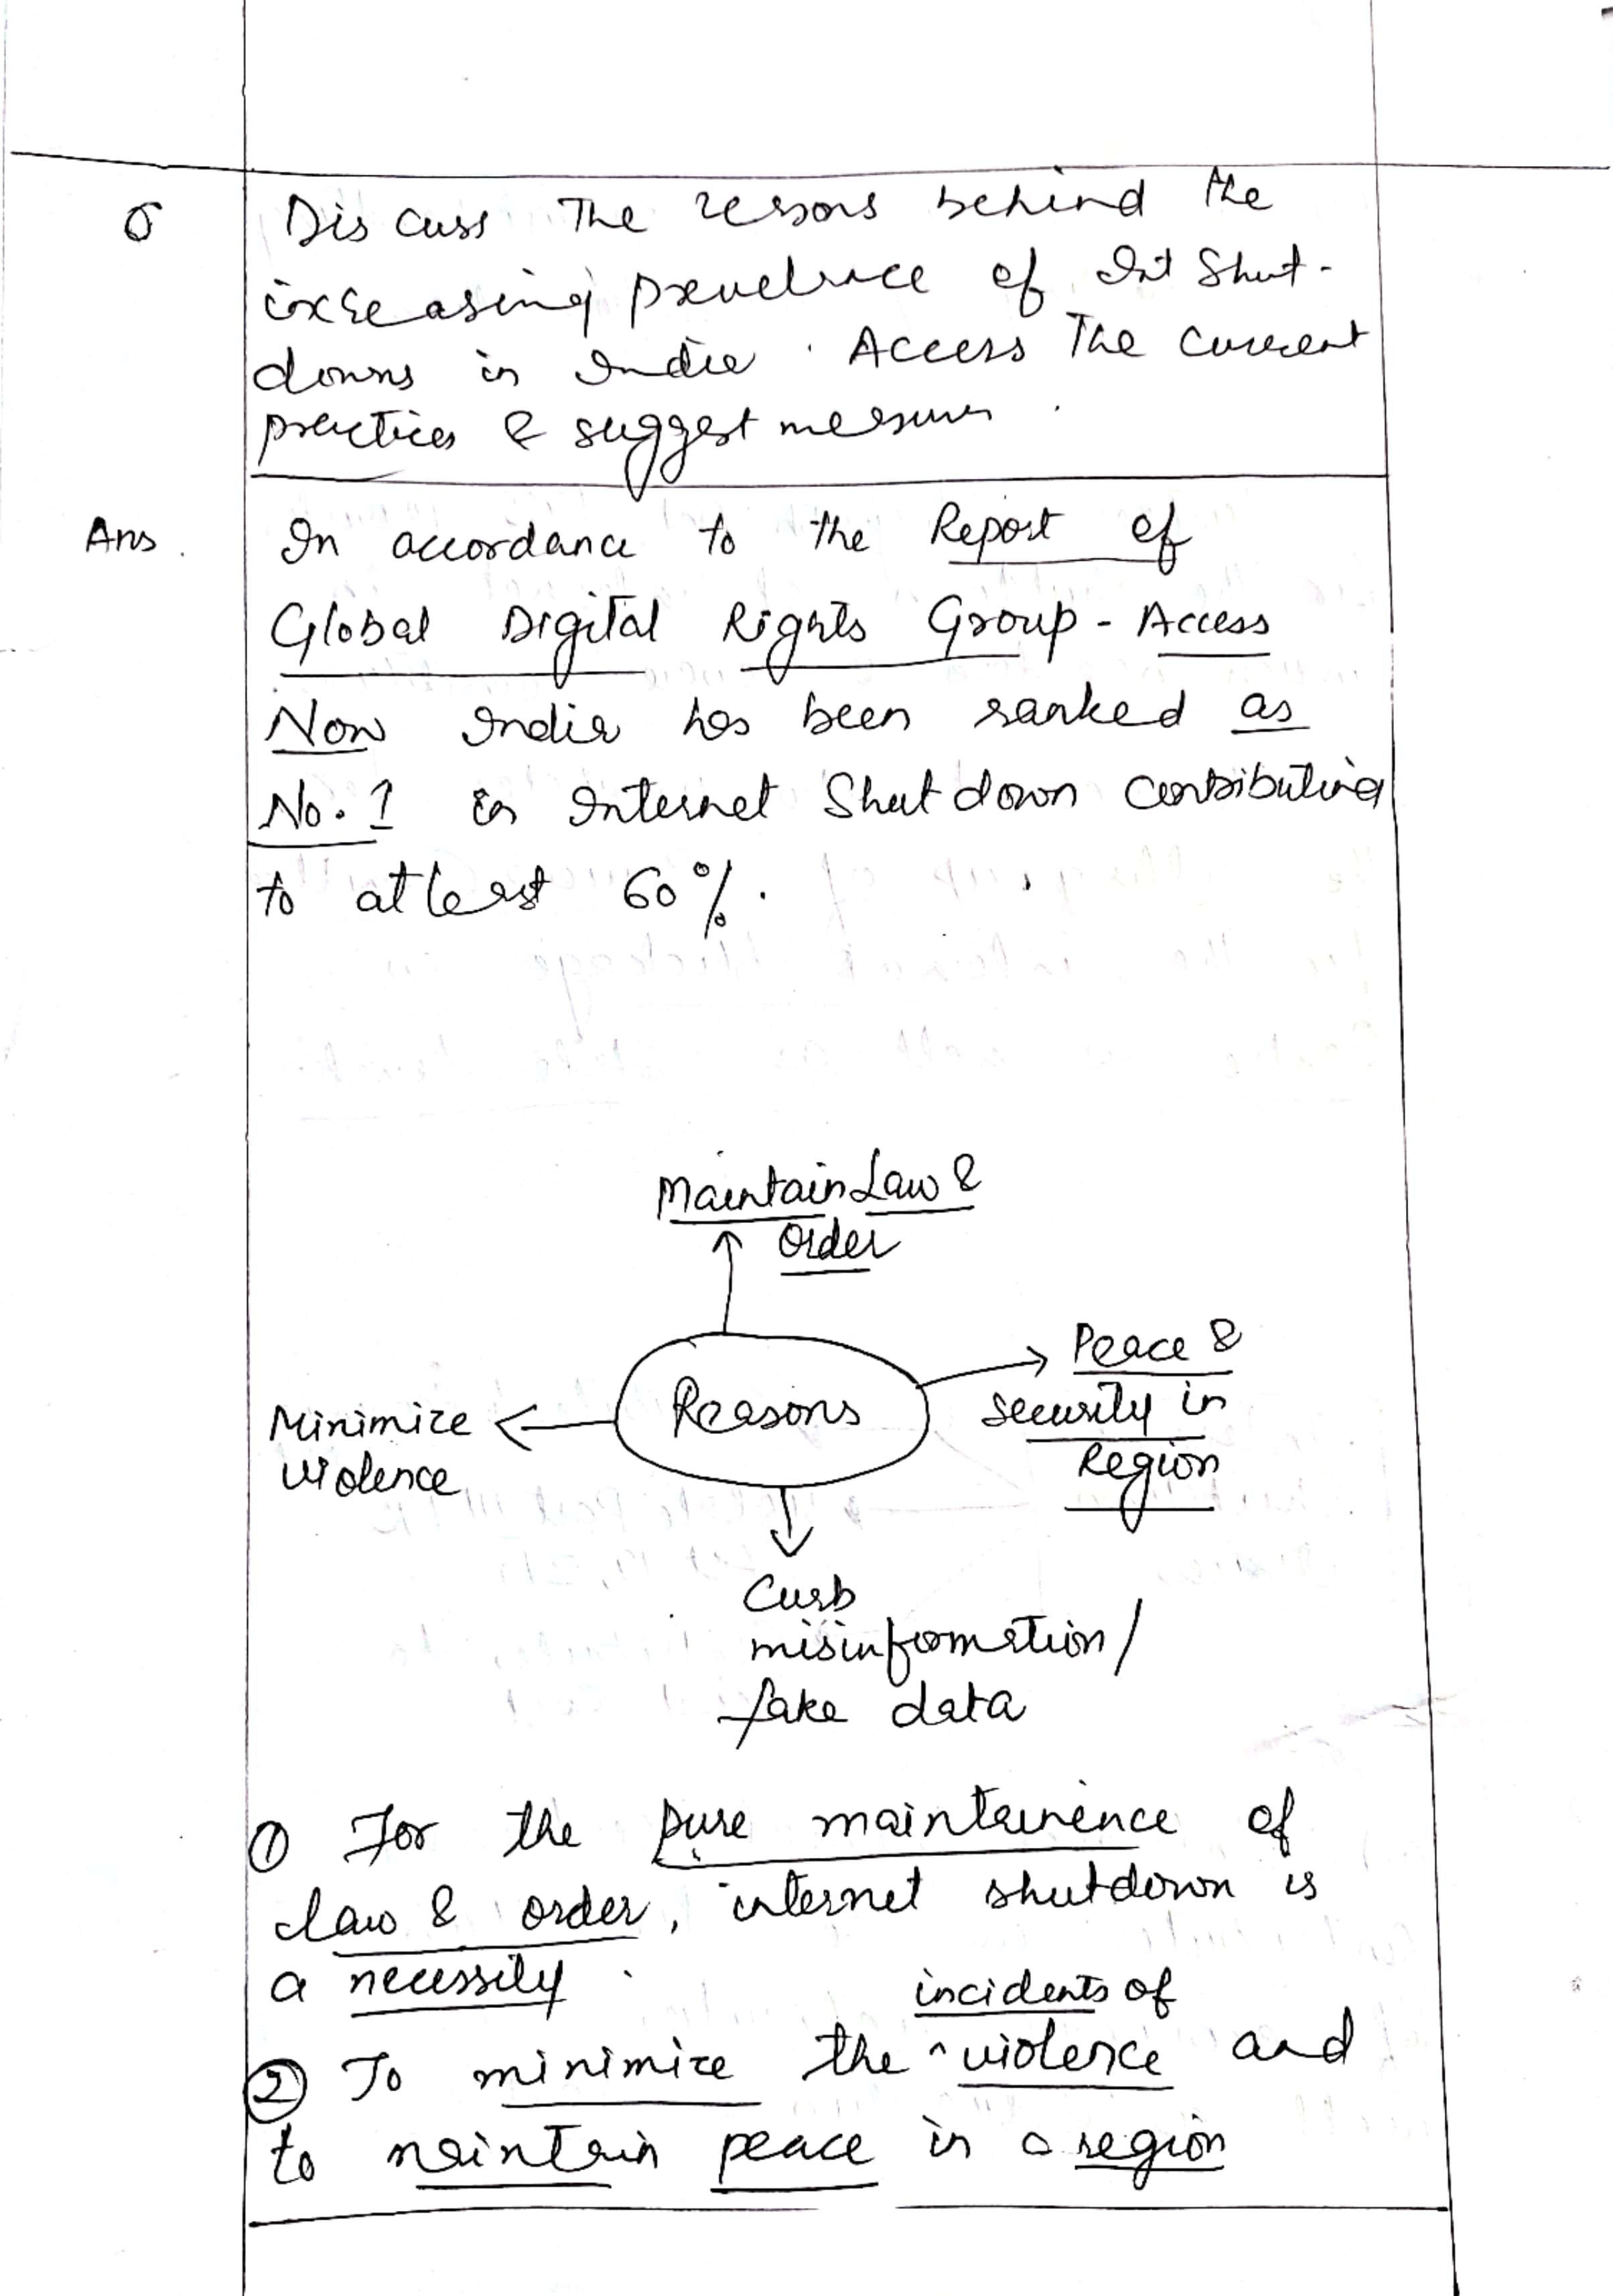 Q Discuss The resons behind the
increasing prevelance of Int Shut-
downs in India. Access The current
practices & suggest measures.
Ans. In accordance to the Report of
Global Digital Rights Group - Access
Now India has been ranked as
No. 1 in Internet Shutdown contributing
to atleast 60%.
Maintain Law &
Order
Peace &
security in
Region
Reasons
Minimize
violence
Curb
misinformation/
fake data
① For the pure maintainence of
law & order, internet shutdown is
a necessity.
② To minimize the ^ incidents of violence and
to maintain peace in a region